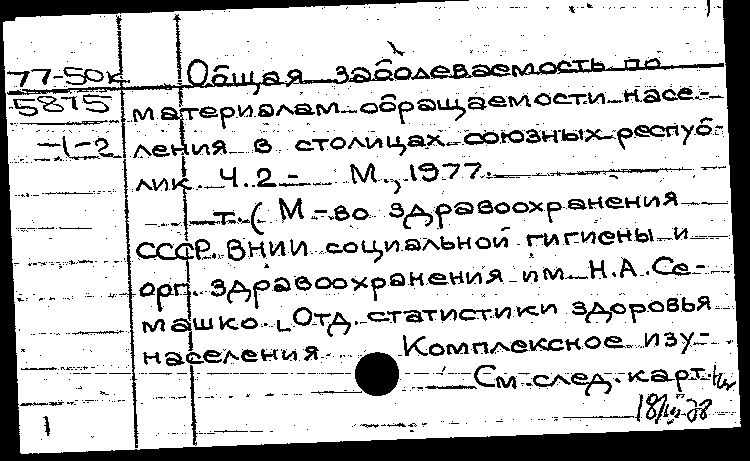 77-50к Общая заболеваемость по
5815 материалам обращаемости насе-
-1-2 ления в столицах союзных респуб-
лик. Ч.2- М., 1977.
т. ( М-во здравоохранения
СССР. ВНИИ социальной гигиены и
орг. здравоохранения им. Н.А. Се-
машко. Отд. статистики здоровья
населения. Комплексное изу-
См. след. карт.
1